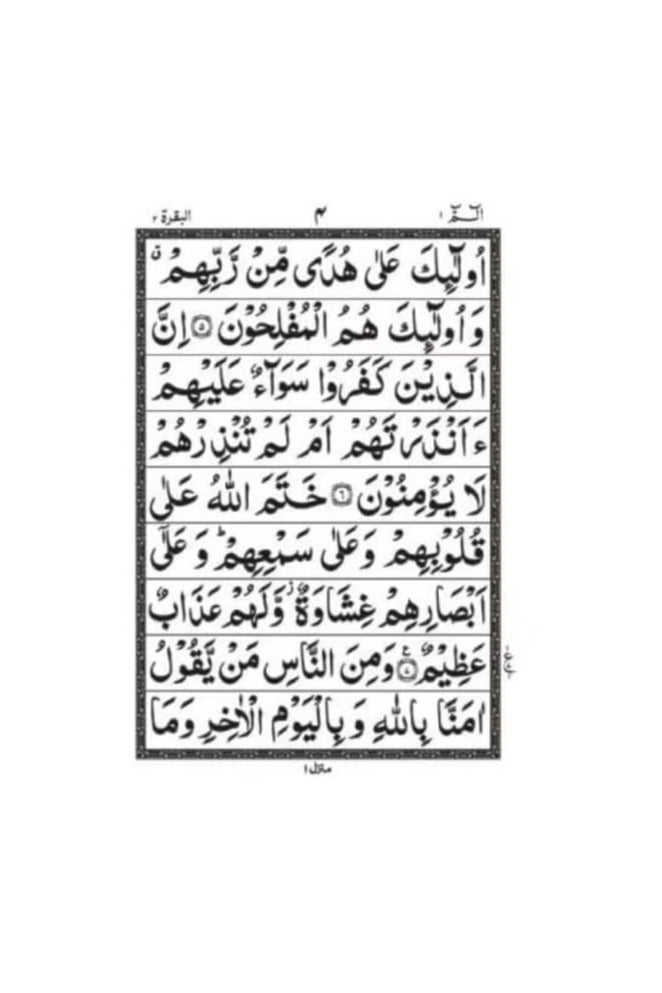 الٓـمّٓ ١ ٤ البقرة ٢
اُولٰٓئِكَ عَلٰى هُدًى مِّنْ رَّبِّهِمْ ۙ
وَ اُولٰٓئِكَ هُمُ الْمُفْلِحُوْنَ ۝٥ اِنَّ
الَّذِيْنَ كَفَرُوْا سَوَآءٌ عَلَيْهِمْ
ءَاَنْذَرْتَهُمْ اَمْ لَمْ تُنْذِرْهُمْ
لَا يُؤْمِنُوْنَ ۝٦ خَتَمَ اللّٰهُ عَلٰى
قُلُوْبِهِمْ وَعَلٰى سَمْعِهِمْ ؕ وَ عَلٰٓى
اَبْصَارِهِمْ غِشَاوَةٌ ؗ وَّلَهُمْ عَذَابٌ
عَظِيْمٌ ۝٧ وَمِنَ النَّاسِ مَنْ يَّقُوْلُ
اٰمَنَّا بِاللّٰهِ وَ بِالْيَوْمِ الْاٰخِرِ وَمَا
منزل ١